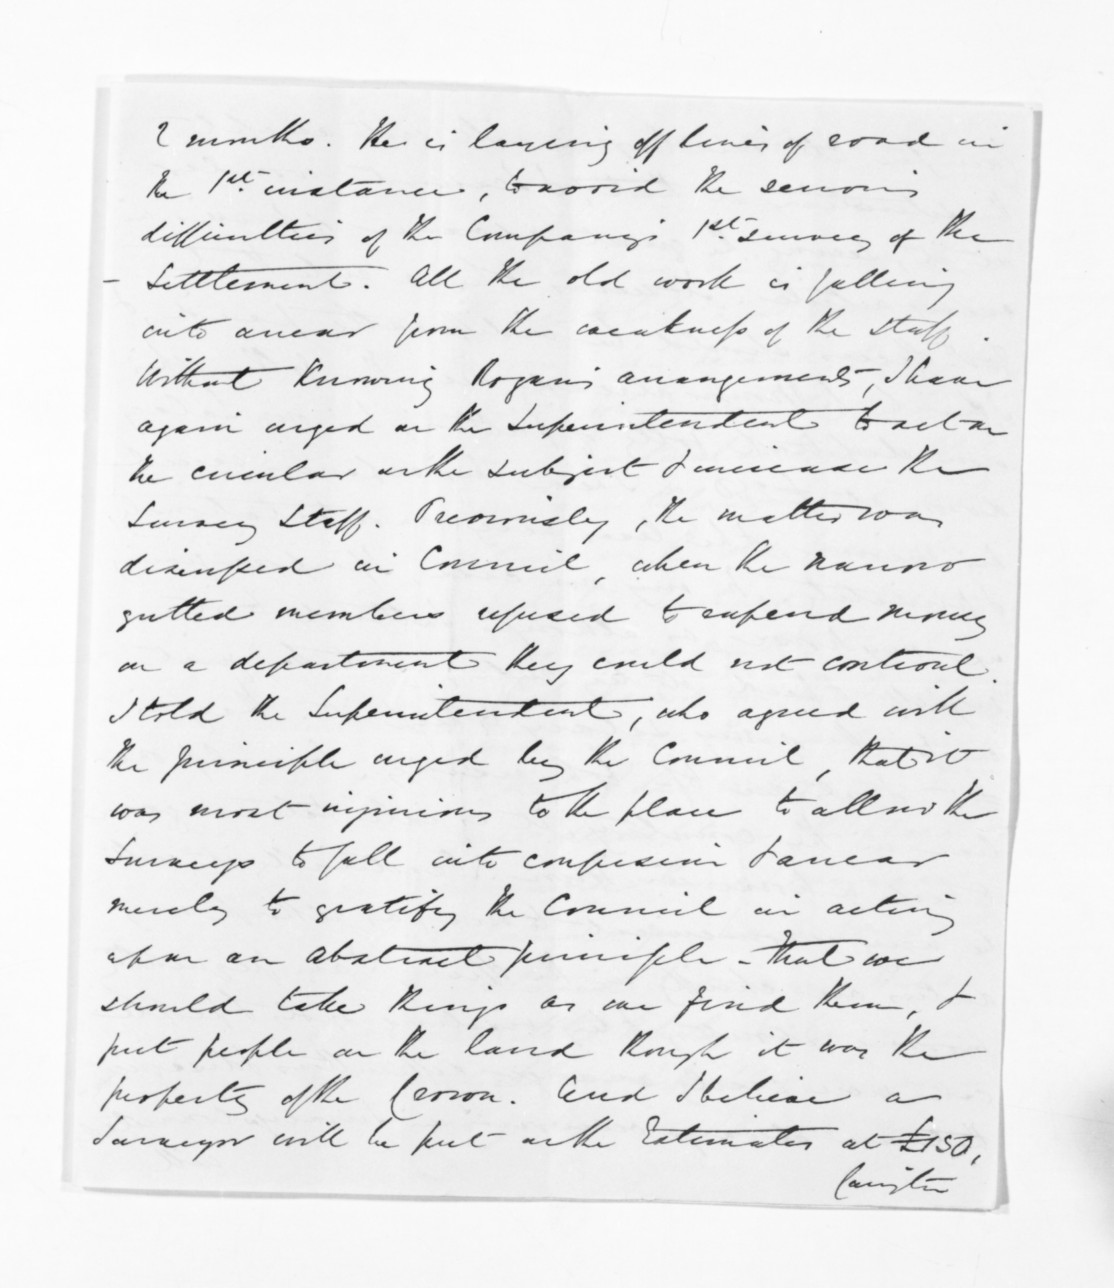 2 months. He is laying off lines of road in
the 1st. instance, to avoid the serious
difficulties of the Company's 1st. survey of the
- Settlement. All the old work is falling
into arrear from the weakness of the staff.
Without knowing Rogan's arrangements, I have
again urged on the Superintendent to act on
the circular on the subject & increase the
Survey Staff. Previously, the matter was
discussed in Council, when the narrow
gutted members refused to expend money
on a department they could not controul.
I told the Superintendent, who agreed with
the principle urged by the Council, that it
was most injurious to the place to allow the
Surveys to fall into confusion & arrear
merely to gratify the Council in acting
upon an abstract principle - that we
should take things as we find them, &
put people on the land though it was the
property of the Crown. And I believe a
Surveyor will be put on the Estimates at £150,
Carrington